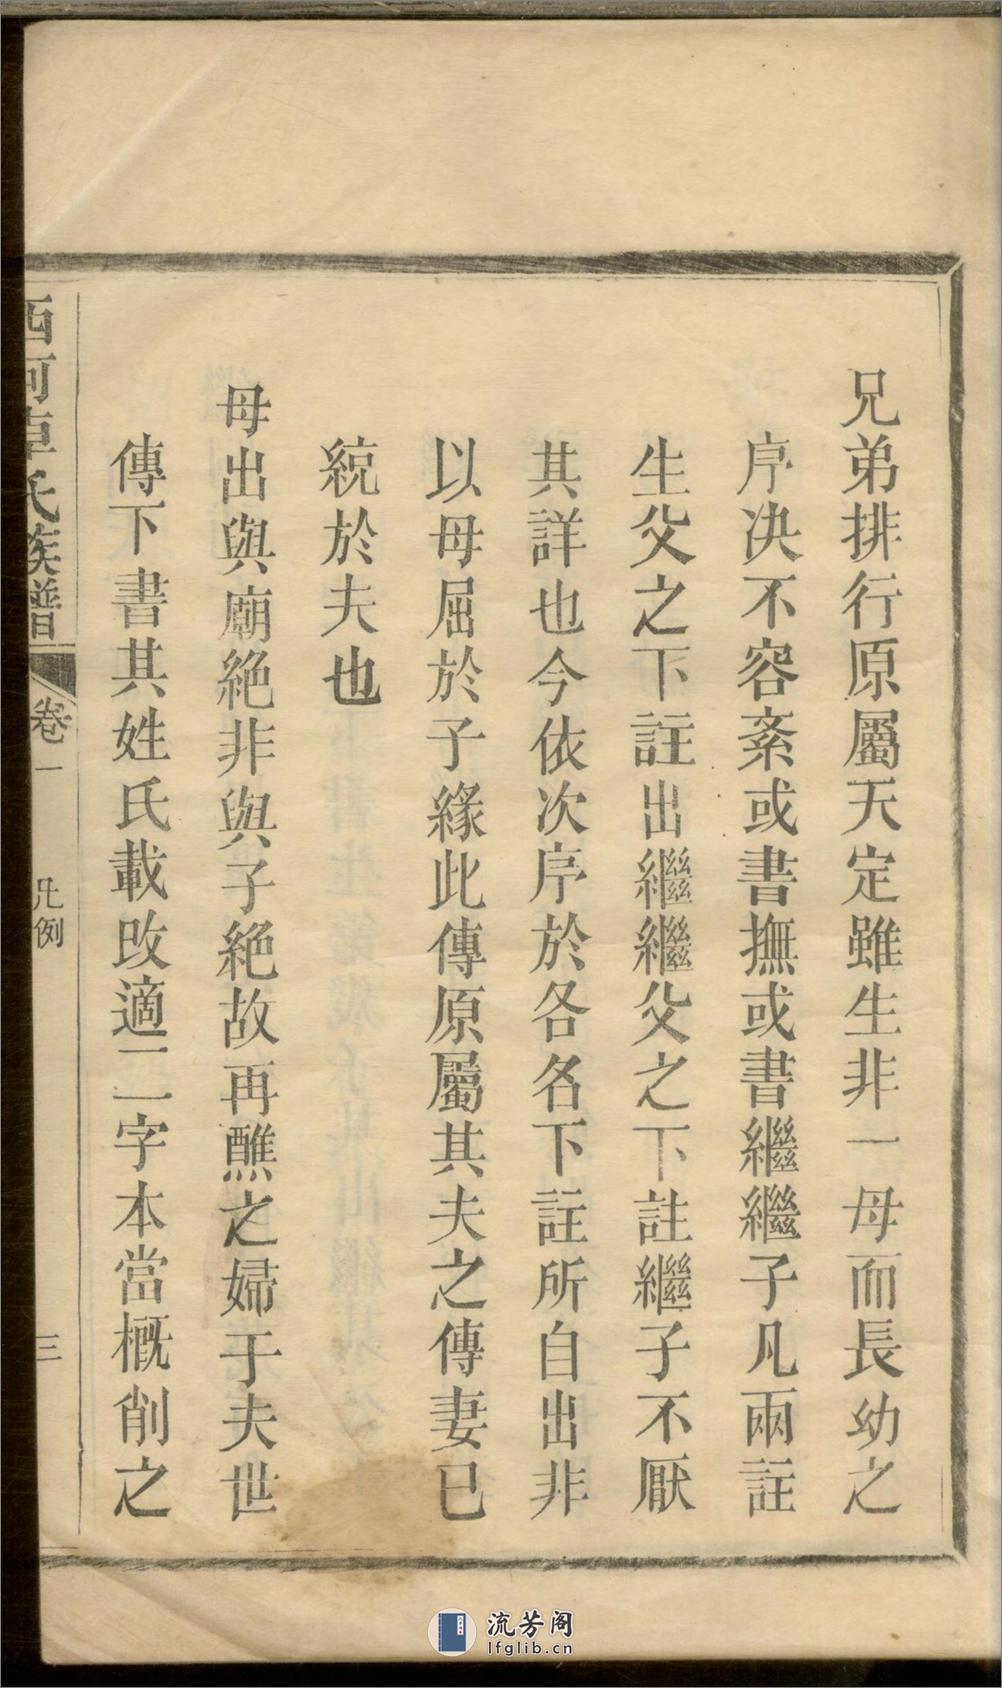 兄弟排行原屬天定雖生非一母而長幼之
序决不容紊或書撫或書繼繼子凡兩註
生父之下註出繼繼父之下註繼子不厭
其詳也今依次序於各名下註所自出非
以母屈於子緣此傳原屬其夫之傳妻已
統於夫也
母出與廟絕非與子絕故再醮之婦于夫世
傳下書其姓氏載改適二字本當概削之
西河卓氏族譜 卷一 凡例 三
流芳阁
lfglib.cn